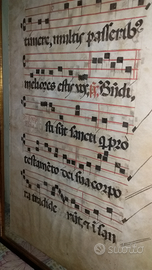 timere, multis passerib⁹
meliores estis vos. Bñdi,
sti sūt sancti q̇ pro
testamēto dei sua corpo
ra tradide rūt, ⁊ i san